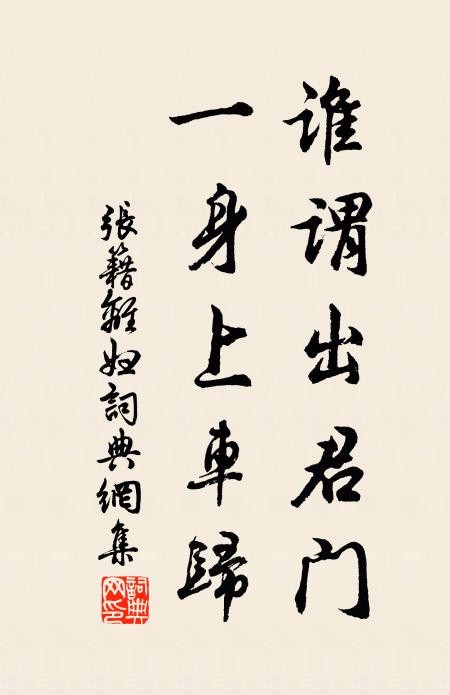 谁謂出君门
一身上車歸
張籍離婦詞典網集
詞典网印